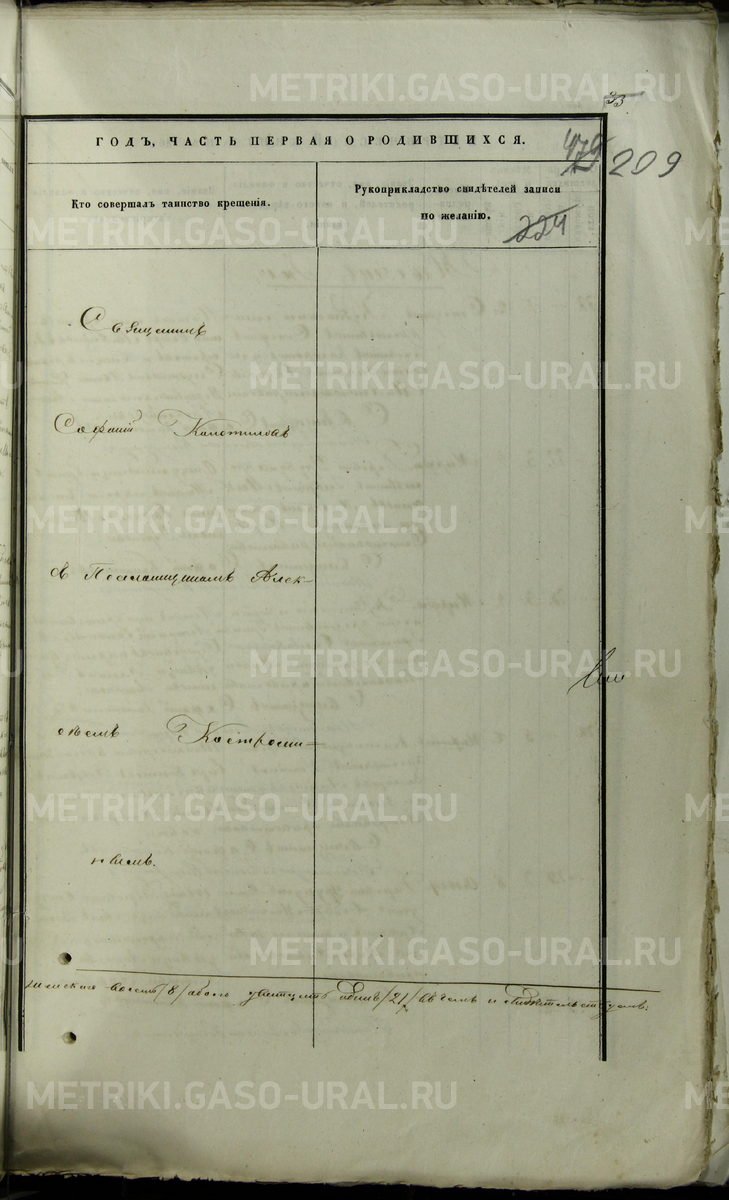 METRIKI.GASO-URAL.RU
33
ГОДЪ, ЧАСТЬ ПЕРВАЯ О РОДИВШИХСЯ.
479
209
Кто совершалъ таинство крещенія.
Рукоприкладство свидѣтелей записи
по желанію.
224
Священникъ
METRIKI.GASO-URAL.RU
METRIKI.GASO-URAL.RU
METRIKI.GASO-URAL.RU
съ Псаломщикомъ Алек-
METRIKI.GASO-URAL.RU
сѣемъ Костроми-
METRIKI.GASO-URAL.RU
нымъ.
METRIKI.GASO-URAL.RU
женскаго восемь /8/ обоего двадцать одинъ /21/ въ чемъ и свидѣтельствуемъ:
METRIKI.GASO-URAL.RU